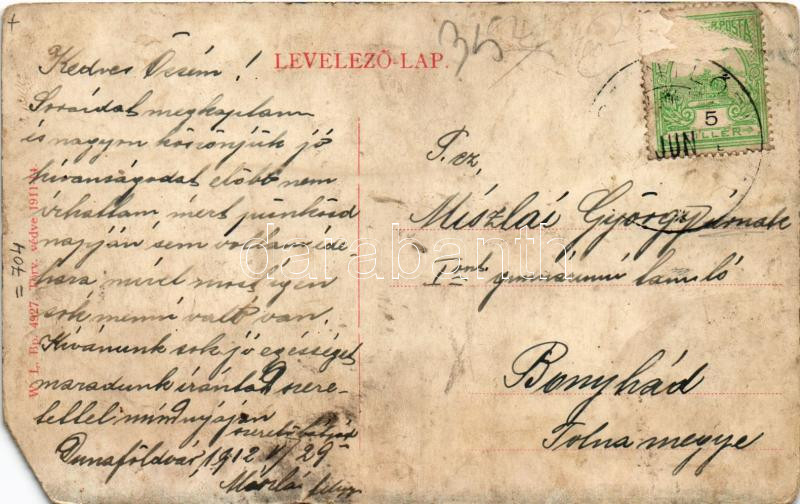 LEVELEZŐ-LAP.
Kedves Öcsém!
Soraidat megkaptam
és nagyon köszönjük jó
kívánságodat előbb nem
írhattam mert pünkösd
napján sem voltam ide-
hara mivel most igen
sok menni való van.
Kívánunk sok jó egésséget
maradunk irántad szere-
tettel mindnyájan
szerető bátyád
Dunaföldvár, 1912 V/29
Miszlai
T. cz.
Miszlai György úrnak
I ső gimnáziumi tanuló
Bonyhád
Tolna megye
POSTA
5
FILLÉR
JUN
W. L. Bp. 4927. Törv. védve 1911-14
= 704
darabanth